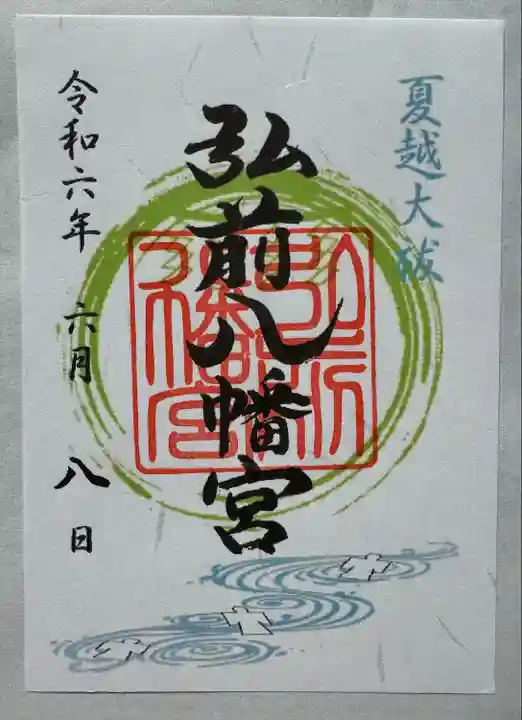 夏越大祓
弘前八幡宮
弘前八幡宮
令和六年 六月 八日